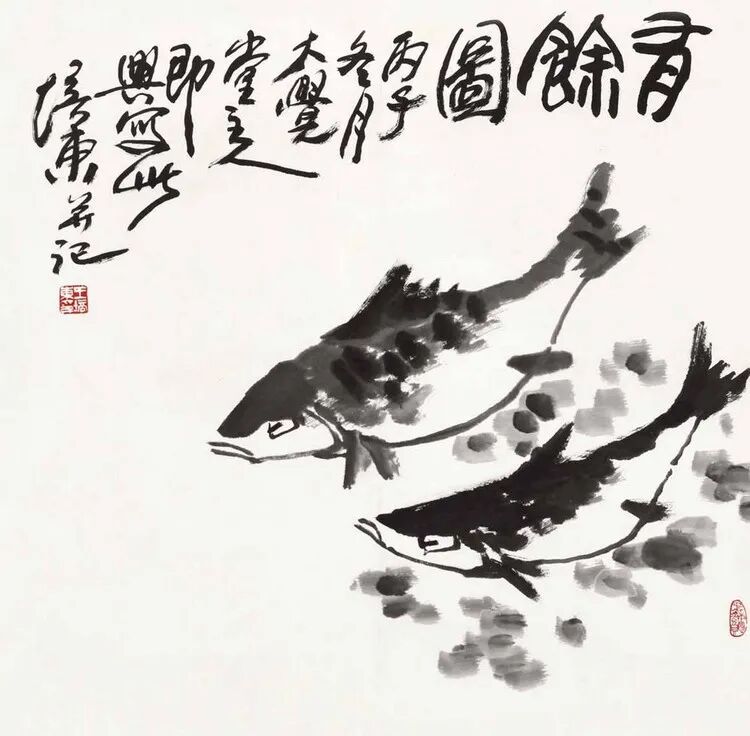 有餘圖
丙子
冬月
大覺
堂主人
即
興寫此
培東并記